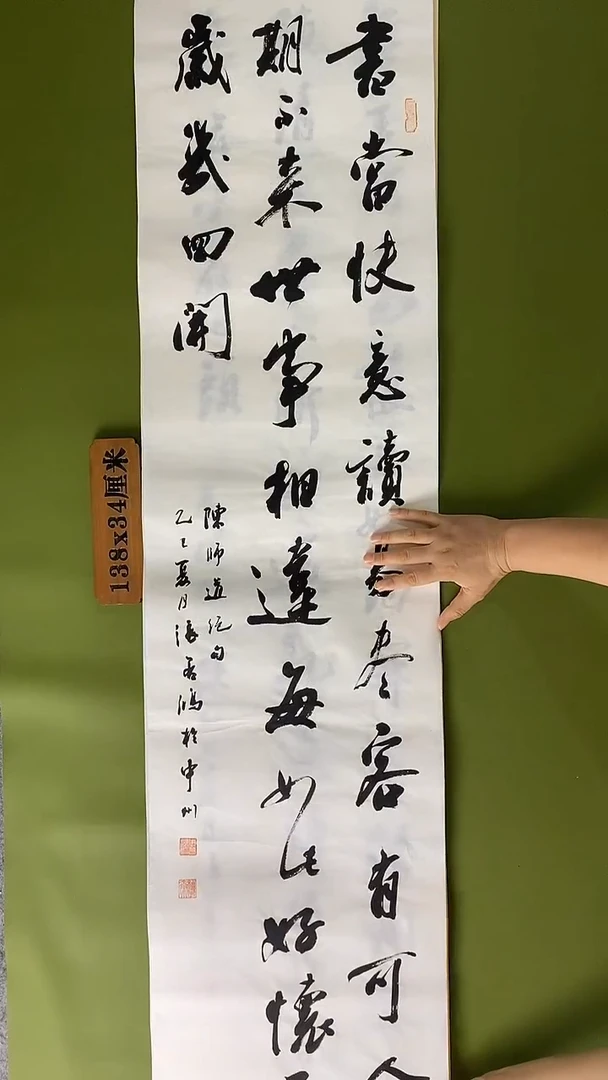 書當快意讀易尽客有可人
期不来世事相違每如此好懷
歲幾回開
陳師道絕句
乙巳夏月張鴻於申州
138x34厘米